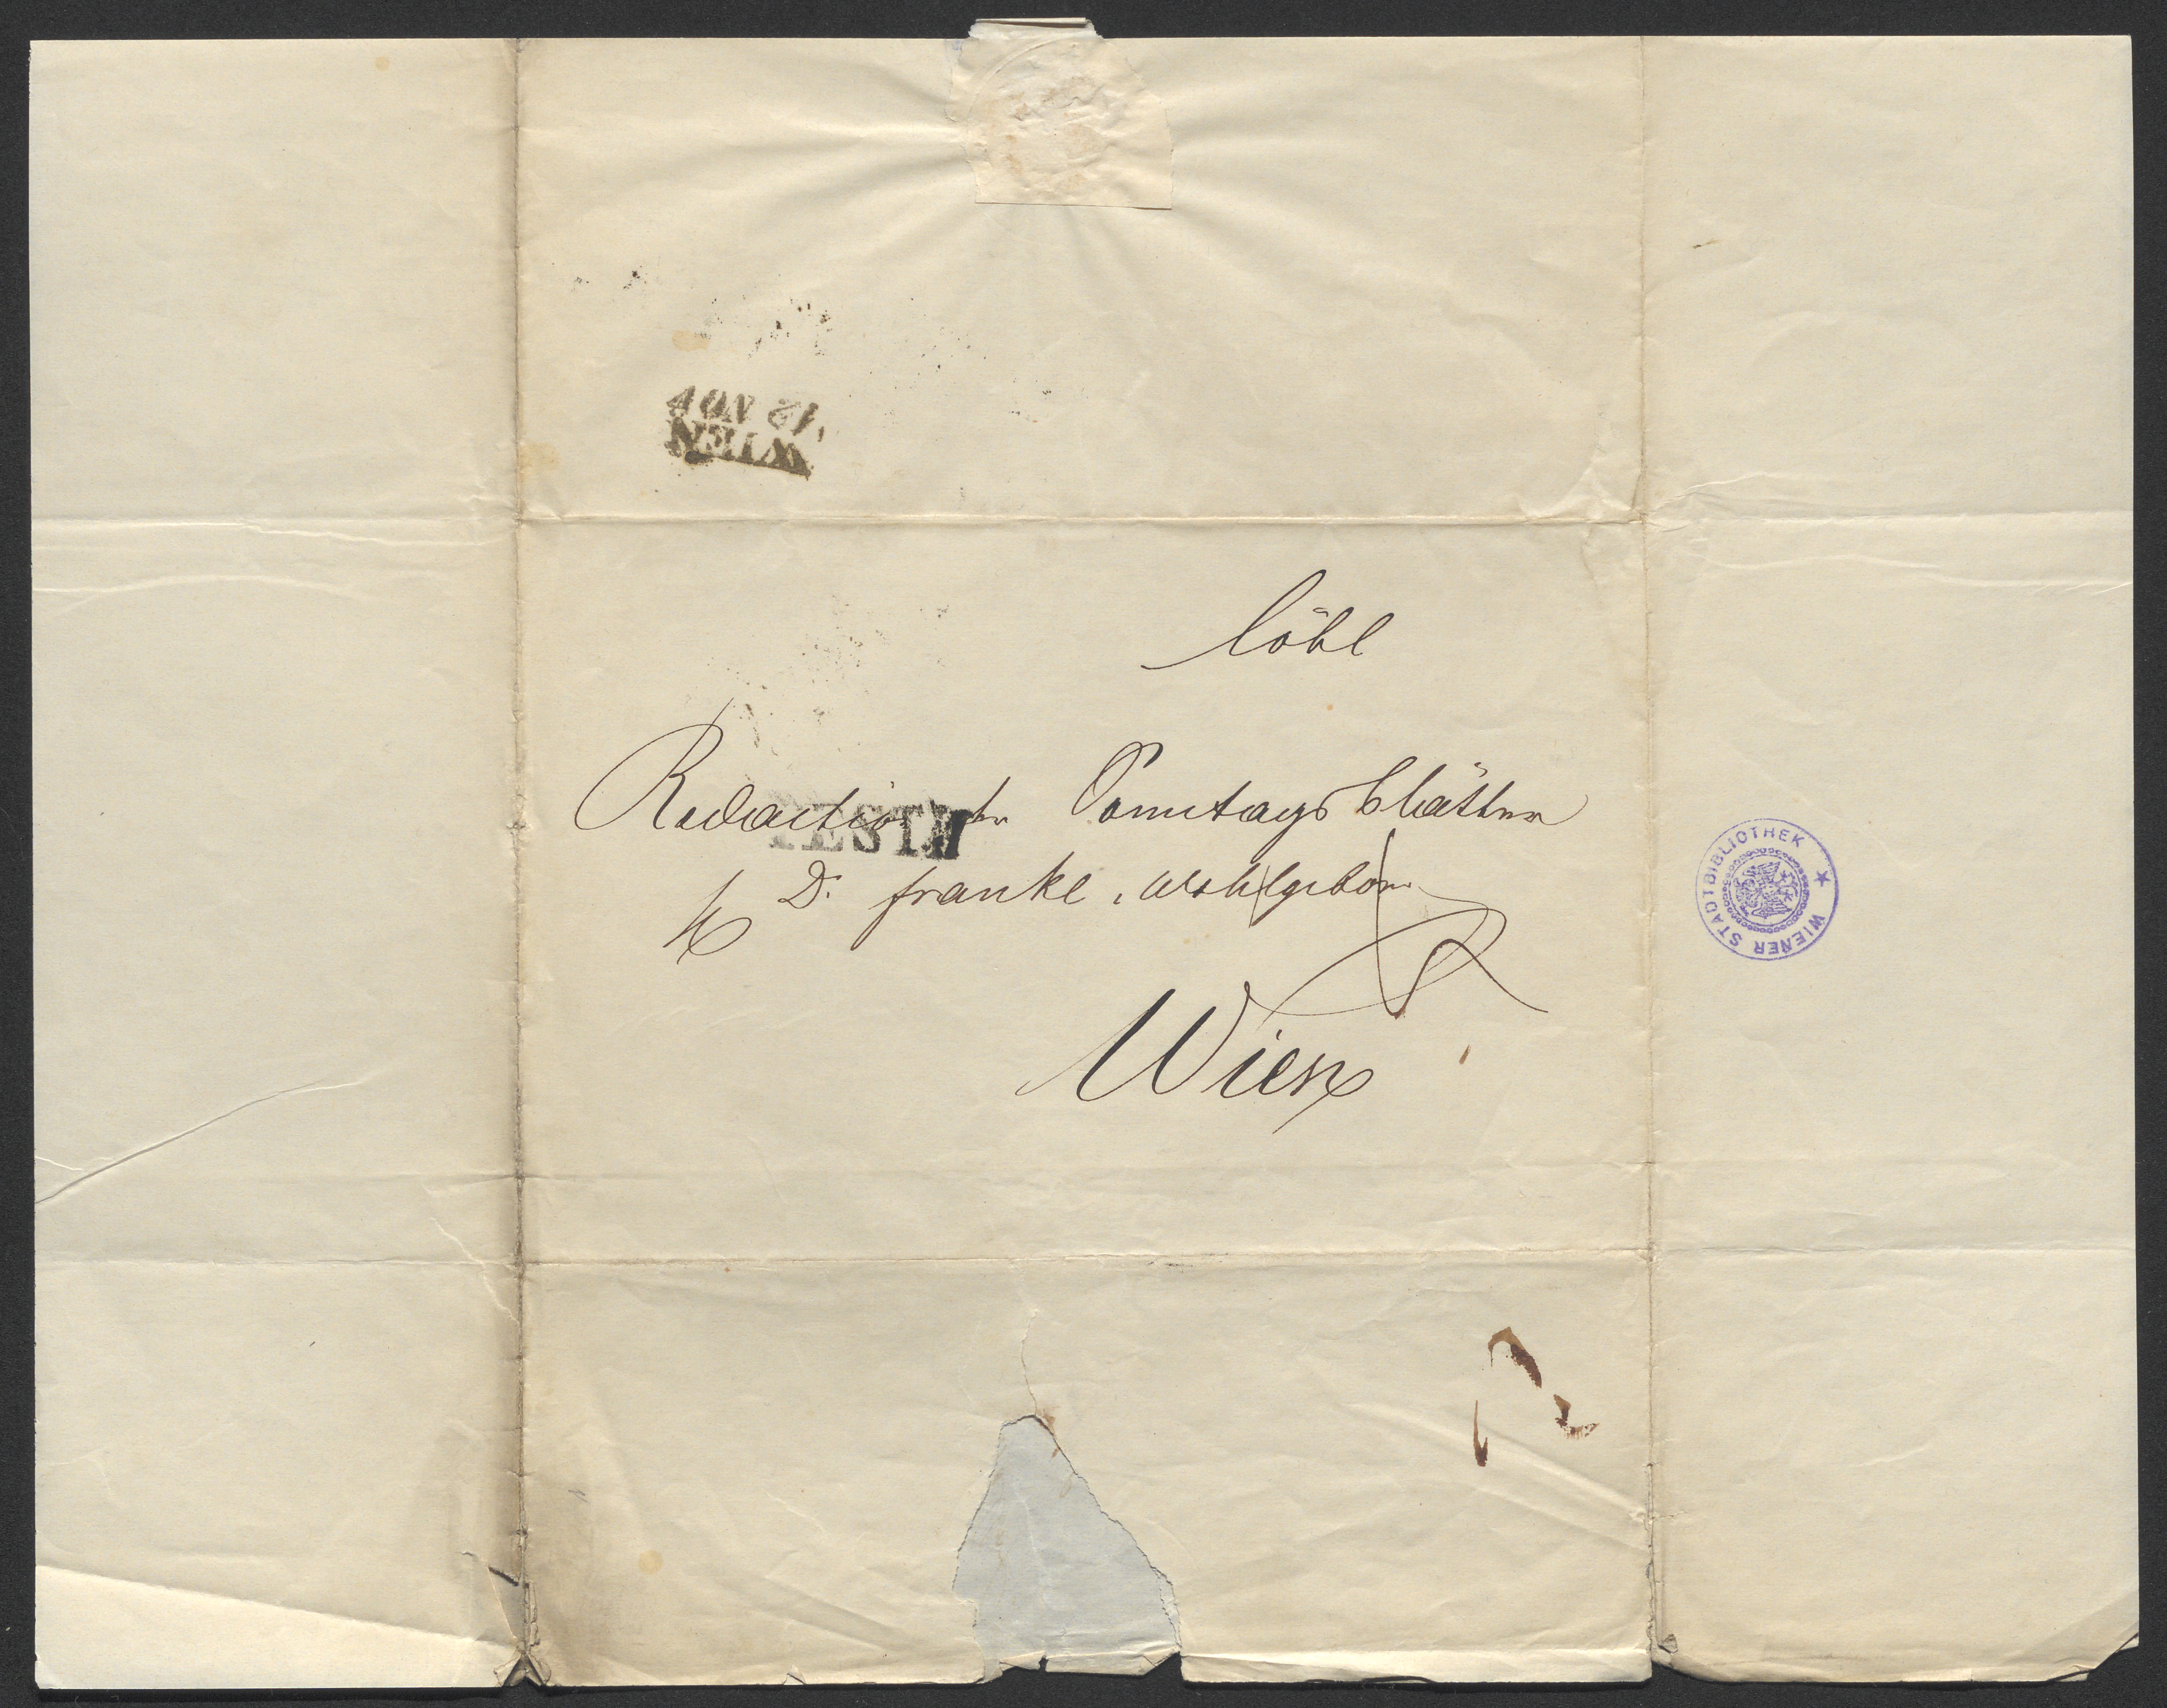 WIEN
12 NOV
löbl
Redaction der Sonntagsblätter
PESTH
Dr Frankl, Wohlgeborn
Wien
WIENER STADTBIBLIOTHEK